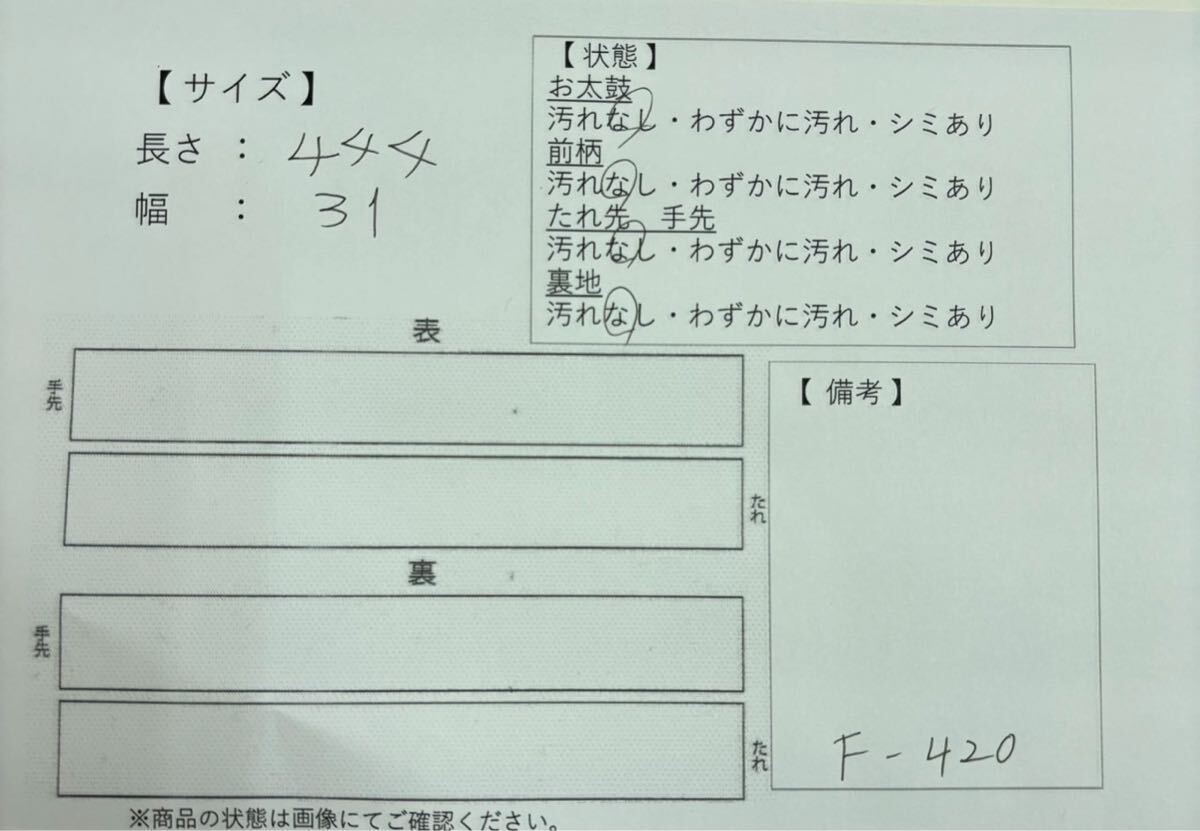 【サイズ】
長さ : 444
幅 : 31
【状態】
お太鼓
汚れなし・わずかに汚れ・シミあり
前柄
汚れなし・わずかに汚れ・シミあり
たれ先 手先
汚れなし・わずかに汚れ・シミあり
裏地
汚れなし・わずかに汚れ・シミあり
表
手先
たれ
裏
手先
たれ
【備考】
F-420
※商品の状態は画像にてご確認ください。